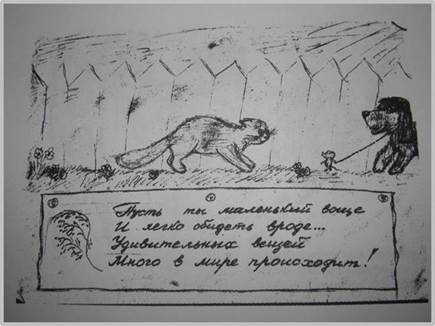 Пусть ты маленький воще
И легко обидеть вроде...
Удивительных вещей
Много в мире происходит!